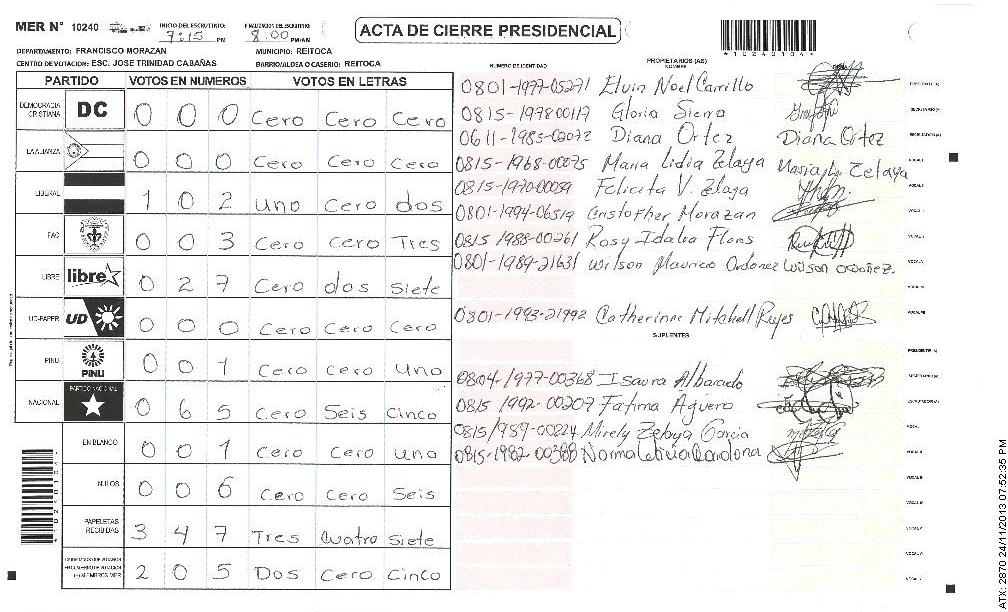 MER N° 10240
INICIO DEL ESCRUTINIO: 7:15 PM
FINALIZACION DEL ESCRUTINIO: 8:00 PM/AM
ACTA DE CIERRE PRESIDENCIAL
DEPARTAMENTO: FRANCISCO MORAZAN
MUNICIPIO: REITOCA
CENTRO DE VOTACION: ESC. JOSE TRINIDAD CABAÑAS
BARRIO/ALDEA O CASERIO: REITOCA
PARTIDO VOTOS EN NUMEROS VOTOS EN LETRAS
DEMOCRACIA CRISTIANA DC 0 0 0 Cero Cero Cero
LA ALIANZA 0 0 0 Cero Cero Cero
LIBERAL 1 0 2 uno Cero dos
FAC 0 0 3 Cero Cero Tres
LIBRE libre 0 2 7 Cero dos siete
UD-FAPER UD 0 0 0 Cero Cero Cero
PINU PINU 0 0 1 Cero Cero Uno
NACIONAL PARTIDO NACIONAL 0 6 5 Cero Seis Cinco
EN BLANCO 0 0 1 Cero Cero uno
NULOS 0 0 6 Cero Cero Seis
PAPELETAS RECIBIDAS 3 4 7 Tres Cuatro siete
2 0 5 Dos Cero Cinco
NUMERO DE IDENTIDAD
PROPIETARIOS (AS)
NOMBRE
FIRMA
0801-1977-05271 Elvin Noel Carrillo
0815-1978-00117 Gloria Sierra
0611-1985-02072 Diana Ortez Diana Ortez
0815-1968-00075 Maria Lidia Zelaya Maria Li Zelaya
0815-1970-00059 Felicita V. Zelaya
0801-1994-06519 Cristofher Morazan
0815 1988-00261 Rosy Idalia Flores
0801-1989-21631 Wilson Mauricio Ordonez Wilson Ordoñez.
0801-1993-21992 Catherinne Mitchell Reyes
SUPLENTES
0804-1977-00368 Isaura Albarado
0815 1992-00207 Fatima Aguero
0815/989-00224 Mirely Zelaya Garcia
0815-1982-00388 Norma Leticia Cardona
ATX: 2870 24/11/2013 07:52:35 PM